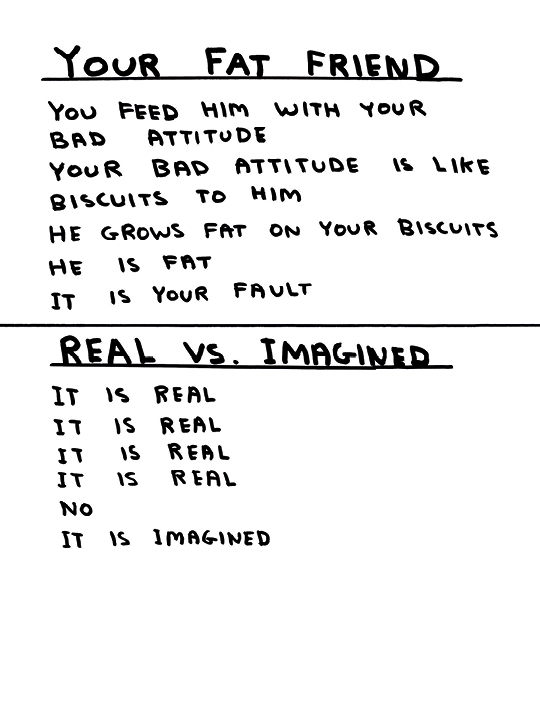 YOUR FAT FRIEND
YOU FEED HIM WITH YOUR
BAD ATTITUDE
YOUR BAD ATTITUDE IS LIKE
BISCUITS TO HIM
HE GROWS FAT ON YOUR BISCUITS
HE IS FAT
IT IS YOUR FAULT
REAL VS. IMAGINED
IT IS REAL
IT IS REAL
IT IS REAL
IT IS REAL
NO
IT IS IMAGINED